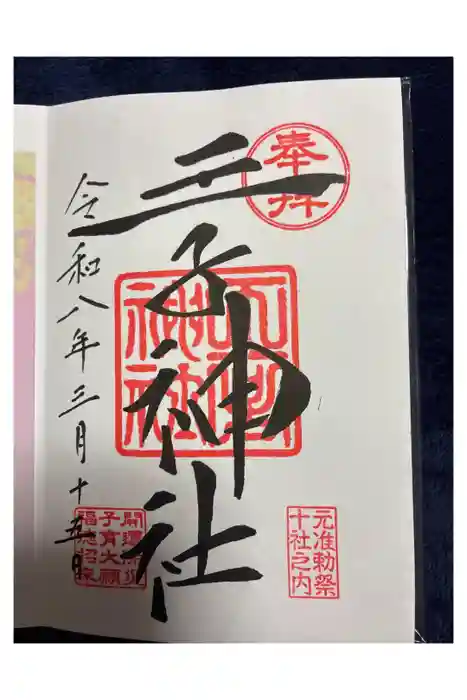 奉拝
王子神社
元准勅祭
十社之内
開運除災
子育大願
福徳招来
令和八年三月十五日